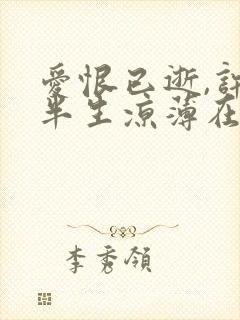 愛恨已逝,許
半生涼薄在
李秀領